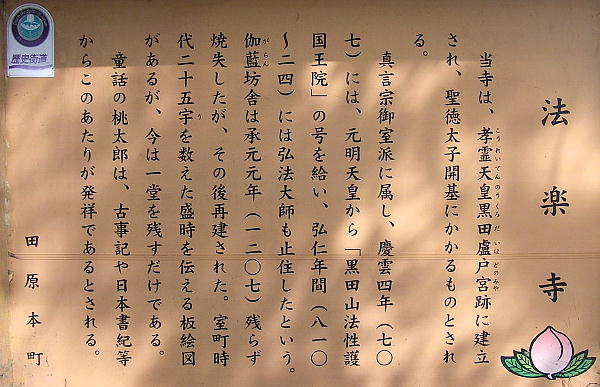 法楽寺
当寺は、孝霊天皇黒田廬戸宮跡に建立
こうれいてんのうくろだいほどのみや
され、聖徳太子開基にかかるものとされ
る。
真言宗御室派に属し、慶雲四年(七〇
七)には、元明天皇から「黒田山法性護
国王院」の号を給い、弘仁年間(八一〇
〜二四)には弘法大師も止住したという。
伽藍坊舎は承元元年(一二〇七)残らず
がらん
焼失したが、その後再建された。室町時
代二十五宇を数えた盛時を伝える板絵図
う
があるが、今は一堂を残すだけである。
童話の桃太郎は、古事記や日本書紀等
からこのあたりが発祥であるとされる。
田原本町
歴史街道